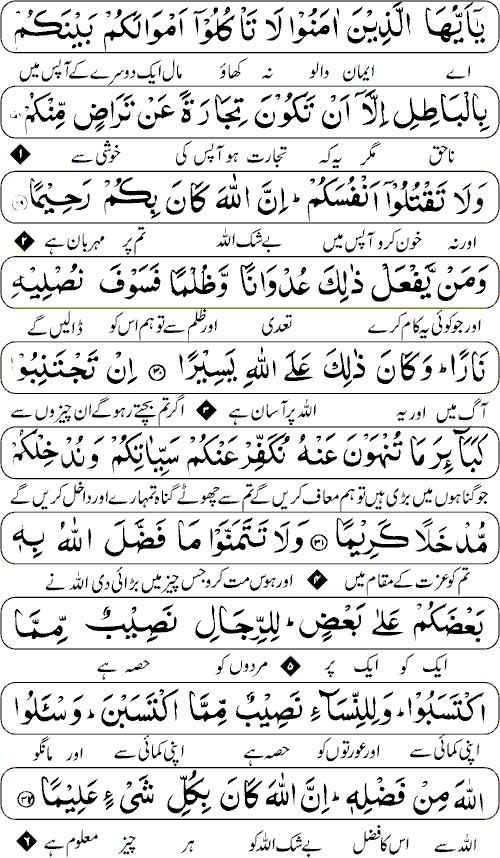 يٰٓاَيُّهَا الَّذِيْنَ اٰمَنُوْا لَا تَاْكُلُوْٓا اَمْوَالَكُمْ بَيْنَكُمْ
اے ایمان والو نہ کھاؤ مال ایک دوسرے کے آپس میں
بِالْبَاطِلِ اِلَّآ اَنْ تَكُوْنَ تِجَارَةً عَنْ تَرَاضٍ مِّنْكُمْ
ناحق مگر یہ کہ تجارت ہو آپس کی خوشی سے ۱
وَلَا تَقْتُلُوْٓا اَنْفُسَكُمْ ۚ اِنَّ اللّٰهَ كَانَ بِكُمْ رَحِيْمًا ۲۹
اور نہ خون کرو آپس میں بے شک اللہ تم پر مہربان ہے ۲
وَمَنْ يَّفْعَلْ ذٰلِكَ عُدْوَانًا وَّظُلْمًا فَسَوْفَ نُصْلِيْهِ
اور جو کوئی یہ کام کرے تعدی اور ظلم سے تو ہم اس کو ڈالیں گے
نَارًا ۚ وَكَانَ ذٰلِكَ عَلَى اللّٰهِ يَسِيْرًا ۳۰ اِنْ تَجْتَنِبُوْا
آگ میں اور یہ اللہ پر آسان ہے ۳ اگر تم بچتے رہو گے ان چیزوں سے
كَبَآئِرَ مَا تُنْهَوْنَ عَنْهُ نُكَفِّرْ عَنْكُمْ سَيِّاٰتِكُمْ وَنُدْخِلْكُمْ
جو گناہوں میں بڑی ہیں تو ہم معاف کریں گے تم سے چھوٹے گناہ تمہارے اور داخل کریں گے
مُّدْخَلًا كَرِيْمًا ۳۱ وَلَا تَتَمَنَّوْا مَا فَضَّلَ اللّٰهُ بِهٖ
تم کو عزت کے مقام میں ۴ اور ہوس مت کرو جس چیز میں بڑائی دی اللہ نے
بَعْضَكُمْ عَلٰى بَعْضٍ ۚ لِلرِّجَالِ نَصِيْبٌ مِّمَّا
ایک کو ایک پر ۵ مردوں کو حصہ ہے
اكْتَسَبُوْا ۚ وَلِلنِّسَآءِ نَصِيْبٌ مِّمَّا اكْتَسَبْنَ ۚ وَسْـَٔلُوا
اپنی کمائی سے اور عورتوں کو حصہ ہے اپنی کمائی سے اور مانگو
اللّٰهَ مِنْ فَضْلِهٖ ۚ اِنَّ اللّٰهَ كَانَ بِكُلِّ شَيْءٍ عَلِيْمًا ۳۲
اللہ سے اس کا فضل بے شک اللہ کو ہر چیز معلوم ہے ۶